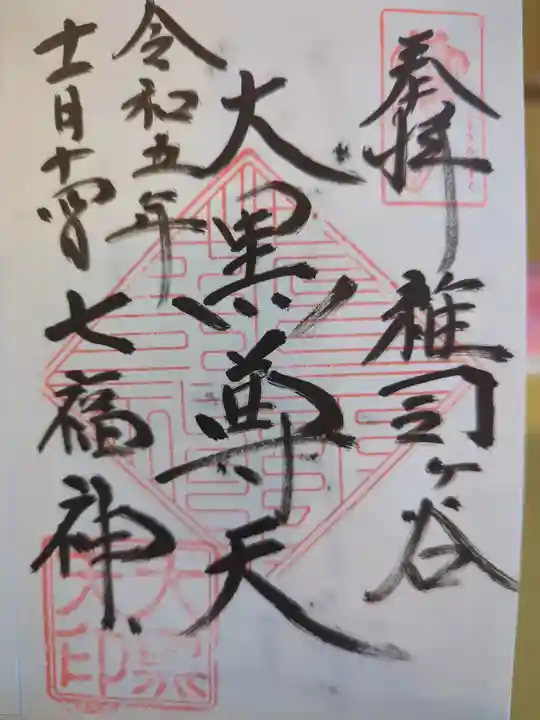 奉拝
雑司ヶ谷
大黒尊天
令和五年
十二月十四日
七福神
大黒
天印